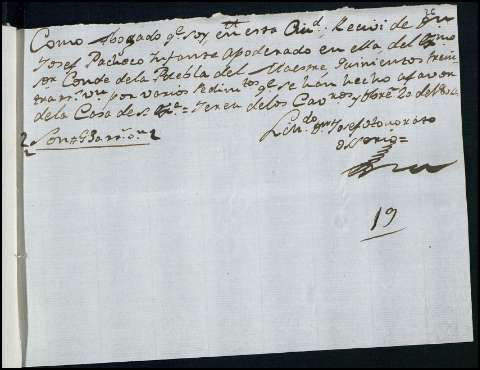 Como Abogado q.e soy en esta Ciud. Recivi de D.n
Josef Pacheco Infante Apoderado en ella del Exmo
S.or Conde dela Puebla del Maestre Quinientos trein
ta rr.s v.n por varios Pedim.tos q.e se han hecho afavor
dela Casa de s. Ex.a = Jerez delos Cav.ros y Obre 20 de 1804
Son
L.do D.n Josef Honorato
19